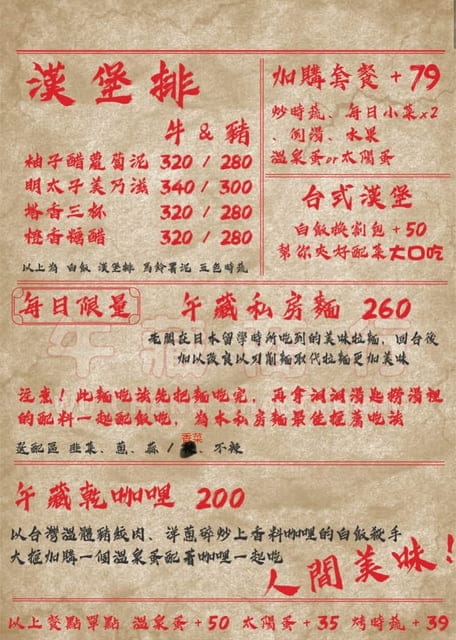 漢堡排
牛 & 豬
柚子醋蘿蔔泥 320 / 280
明太子美乃滋 340 / 300
塔香三杯 320 / 280
橙香糖醋 320 / 280
以上為 白飯 漢堡排 馬鈴薯泥 五色時蔬
加購套餐 + 79
炒時蔬、每日小菜x2
、例湯、水果
溫泉蛋or太陽蛋
台式漢堡
白飯換割包 + 50
幫你夾好配菜大口吃
每日限量
午藏私房麵 260
老闆在日本留學時所吃到的美味拉麵，回台後
加以改良以刀削麵取代拉麵更加美味
注意！此麵吃法先把麵吃完，再拿湯匙撈湯裡
的配料一起配飯吃，為本私房麵最佳推薦吃法
送配區 韭菜、蔥、蒜 / 香菜、不辣
午藏乾咖哩 200
以台灣溫體豬絞肉、洋蔥碎炒上香料咖哩的白飯殺手
大推加購一個溫泉蛋配著咖哩一起吃
人間美味！
以上餐點單點 溫泉蛋 + 50 太陽蛋 + 35 烤時蔬 + 39